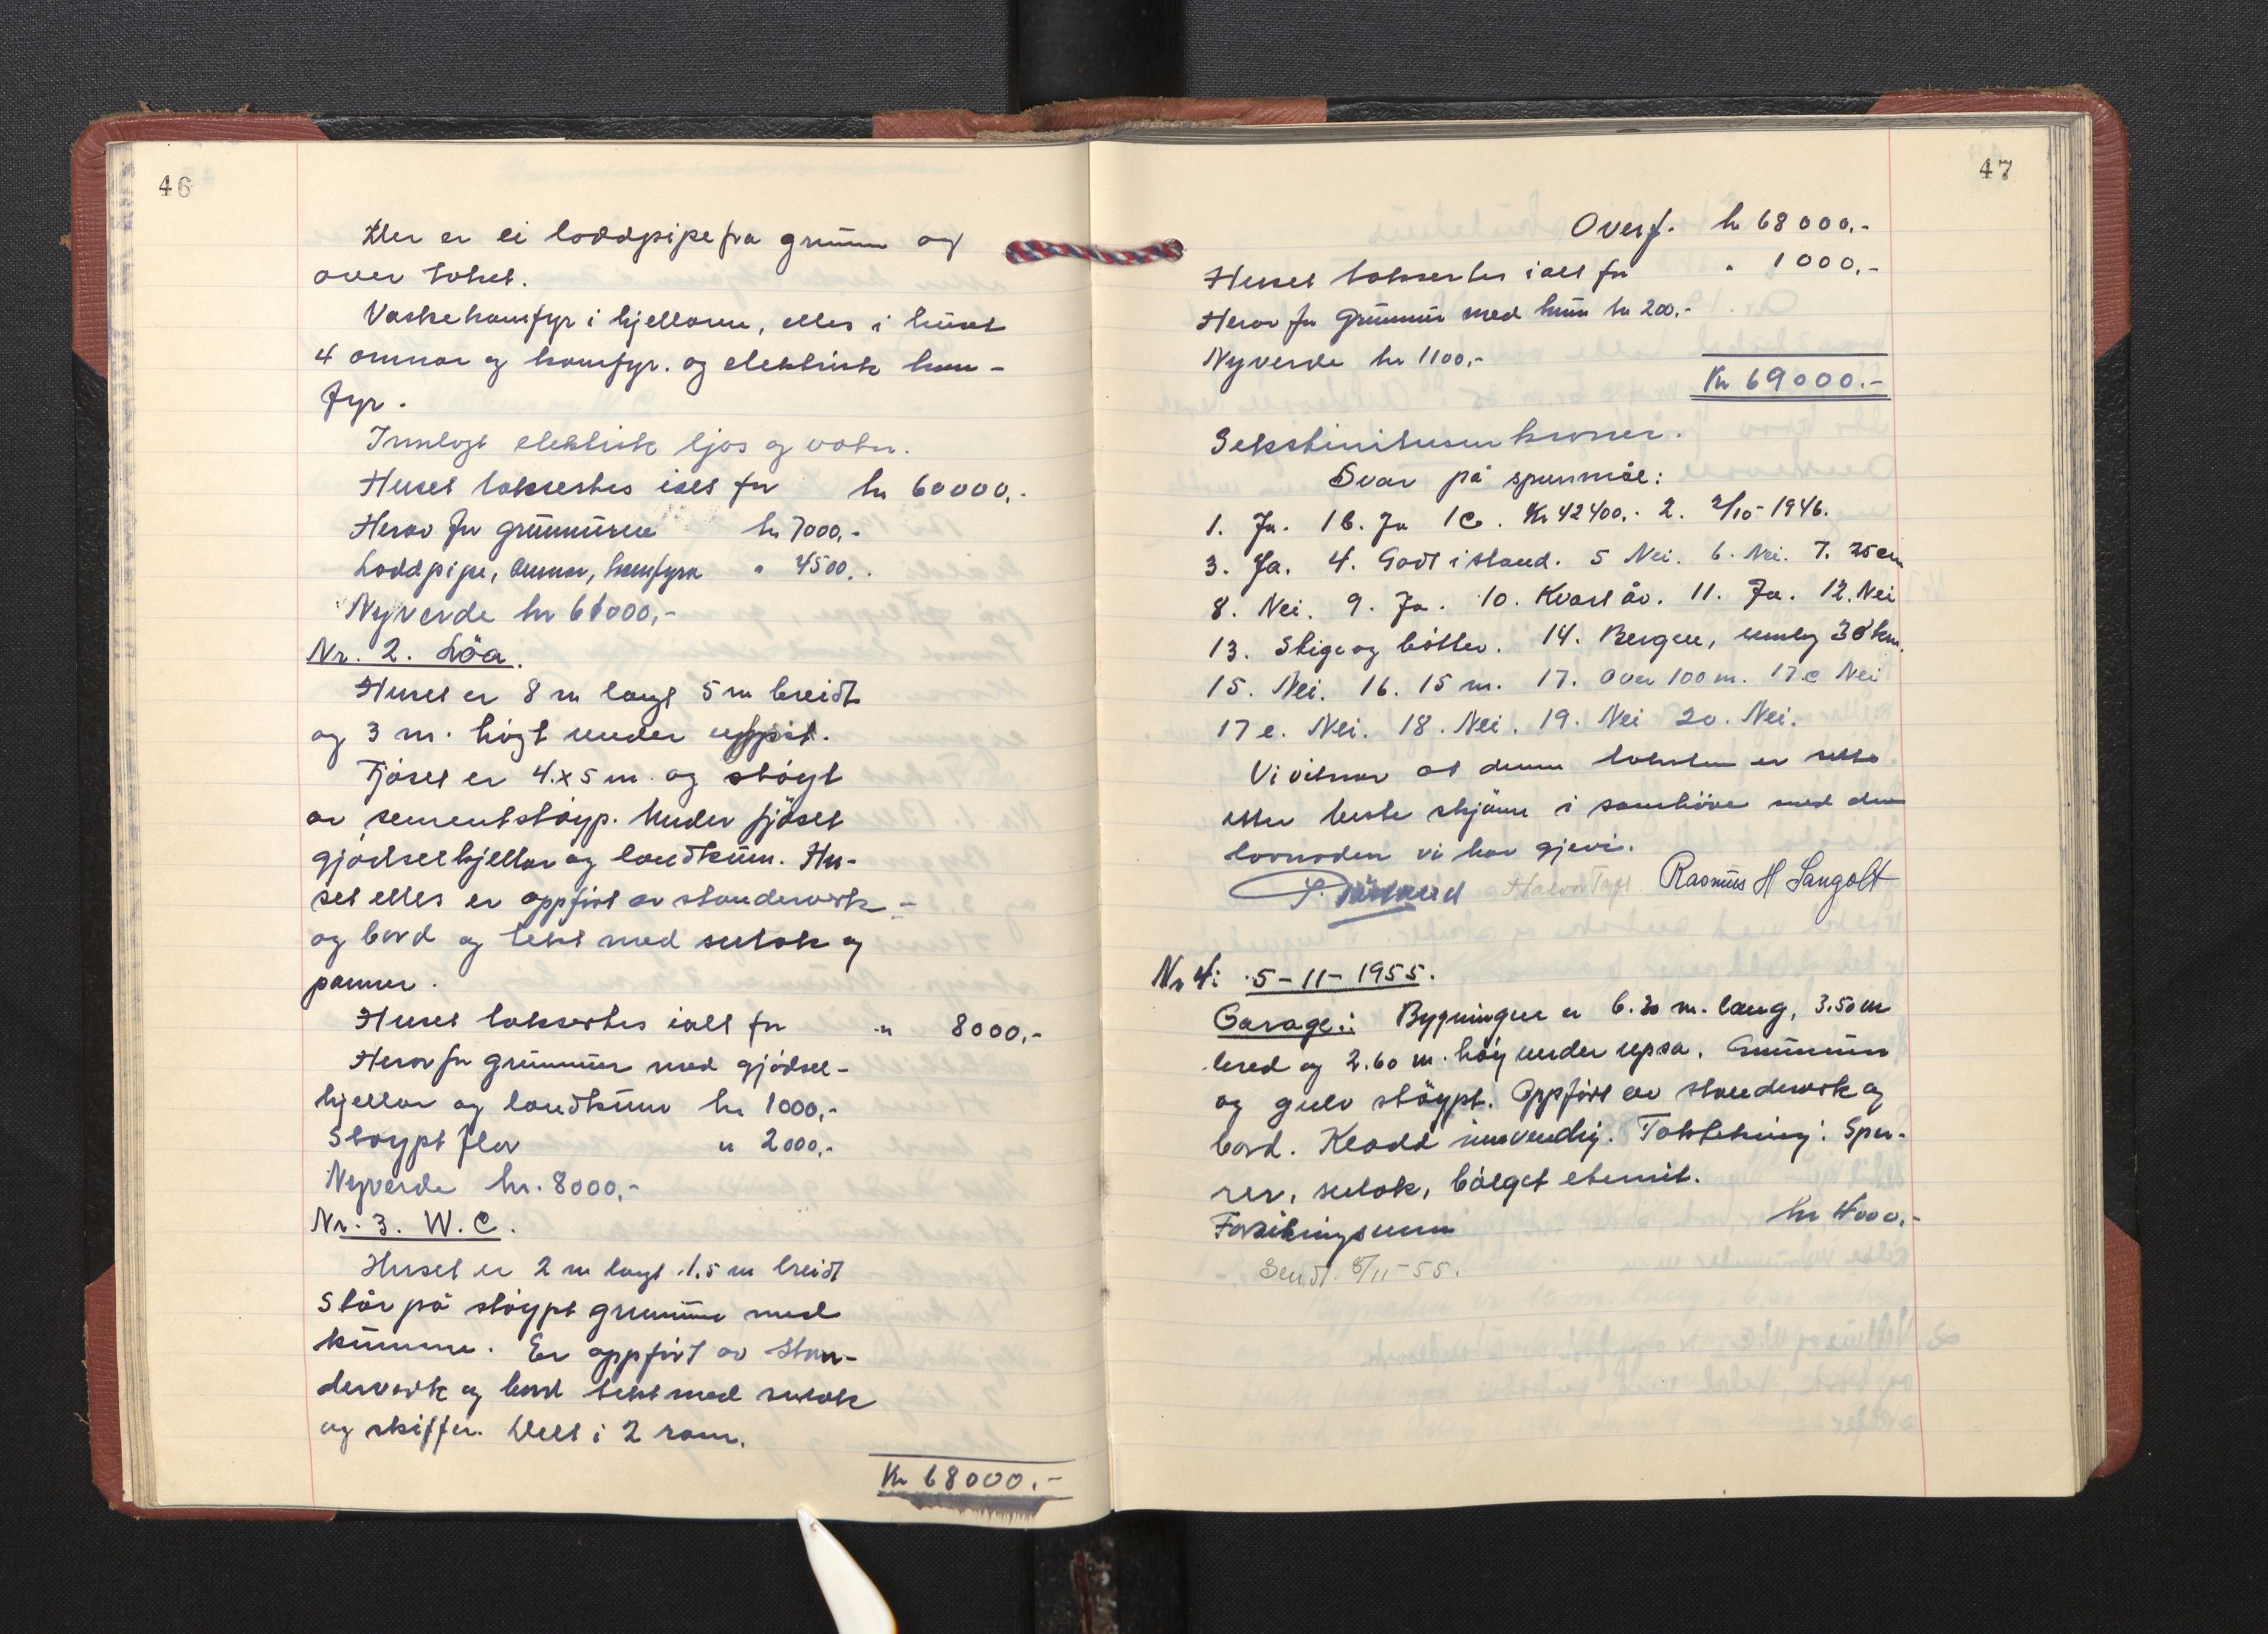 46
Der er ei loddpipe fra grunn og
over taket.
Vaskekomfyr i kjellaren, elles i huset
4 omnar og komfyr. og elektrisk kom-
fyr.
Innlagt elektrisk ljos og vatn.
Huset taksertes ialt for kr 60000,-
Herav for grunnmuren kr 7000,-
Loddpipe, Omnar, komfyra " 4500,-
Nyverde kr 61000,-
Nr. 2. Löa.
Huset er 8 m langt 5 m breidt
og 3 m. högt under
Fjöset er 4 x 5 m. og stöypt
av sementstöyp. Under fjöset
gjödselkjellar og landkum. Hu-
set elles er oppfört av standerverk-
og bord og tekt med sutak og
panner.
Huset taksertes ialt for " 8000,-
Herav for grunnmur med gjödsel-
kjellar og landkum kr 1000,-
Stöypt flor " 2000,-
Nyverde kr. 8000,-
Nr. 3. W.C.
Huset er 2 m langt 1.5 m breidt
Står på stöypt grunnmur med
kumme. Er oppfört av stan-
derverk og bord tekt med sutak
og skiffer. Delt i 2 rom.
Kr 68000.-
47
Overf. kr 68000,-
Huset taksertes ialt for " 1000,-
Herav for Grunnmur med kum kr 200,-
Nyverde kr 1100,-
Kr 69000.-
Sekstinitusen kroner.
Svar på spunmål:
1. Ja. 1b. Ja 1c. Kr 42400,- 2. 2/10-1946.
3. Ja. 4. Godt istand. 5 Nei. 6. Nei. 7. 25 cm
8. Nei. 9. Ja. 10. Kvart år. 11. Ja. 12. Nei
13. Stige og bötter. 14. Bergen, umlag 30 km.
15. Nei. 16. 15 m. 17. Over 100 m. 17.c Nei
17 e. Nei. 18. Nei. 19. Nei 20. Nei.
Vi vitnar at denne taksten er sett
etter beste skjönn i samhöve med den
lovnaden vi har gjevi.
Rasmus H Sangolt
Nr 4: 5-11-1955.
Garage: Bygningen er 6.30 m. lang, 3.50 m
bred og 2.60 m. höy under upsa. Grunnmur
og gulv stöypt. Oppfört av standerverk og
bord. Kledd innvendig. Taktekning: Sper-
rer, sutak, bölget eternit.
Forsikringssum kr 4000,-
Sendt. 8/11-55.